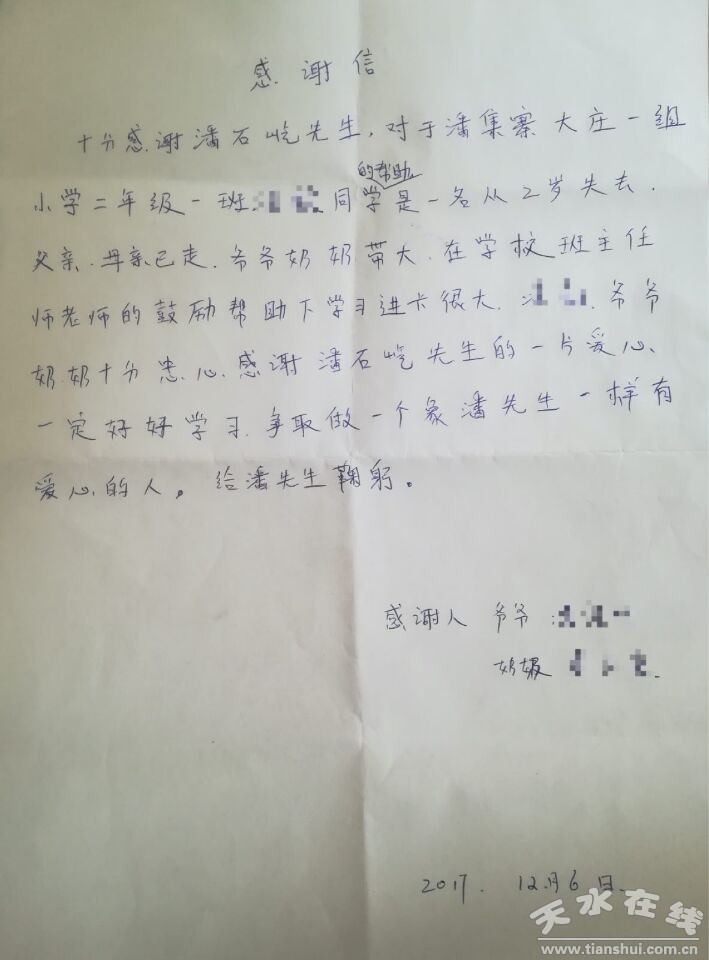 感谢信
十分感谢潘石屹先生,对于潘集寨大庄一组
的帮助
小学二年级一班 同学是一名从2岁失去.
父亲.母亲已走.爷爷奶奶带大.在学校班主任
师老师的鼓励帮助下学习进卡很大. .爷爷
奶奶十分忠心感谢潘石屹先生的一片爱心、
一定好好学习.争取做一个象潘先生一样有
爱心的人。给潘先生鞠躬。
感谢人 爷爷:
奶奶
2017. 12月6日.
天水在线
www.tianshui.com.cn